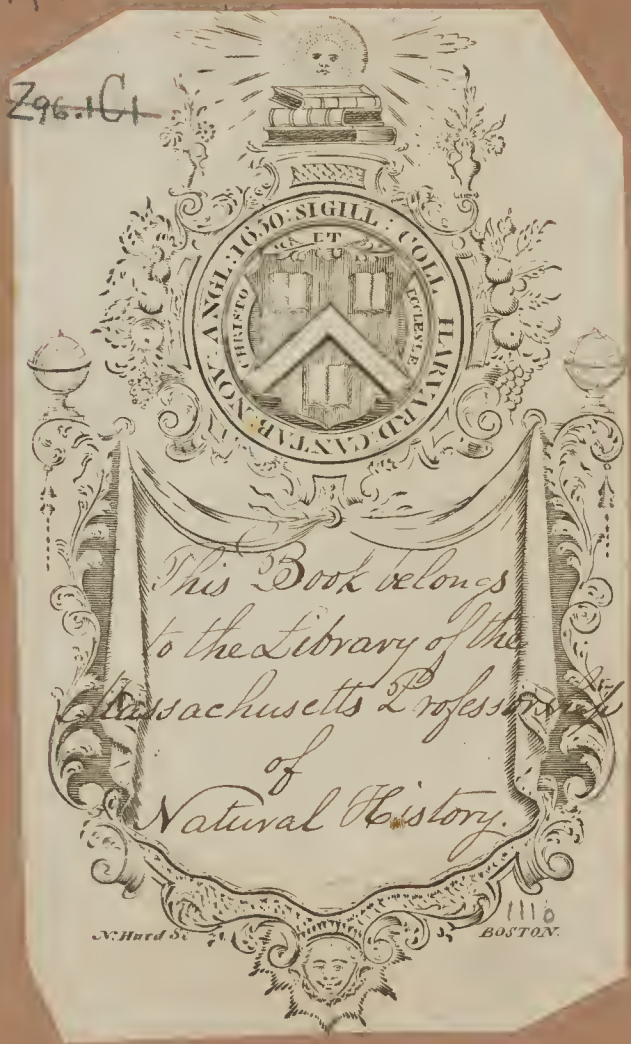 Z96.1C1
SIGILL: COLL HARVARD CANTAB: NOV: ANGL: 1650:
CHRISTO ET ECCLESIÆ
This Book belongs
to the Library of the
Massachusetts Professorship
of
Natural History.
1110
N. Hurd Sc BOSTON.